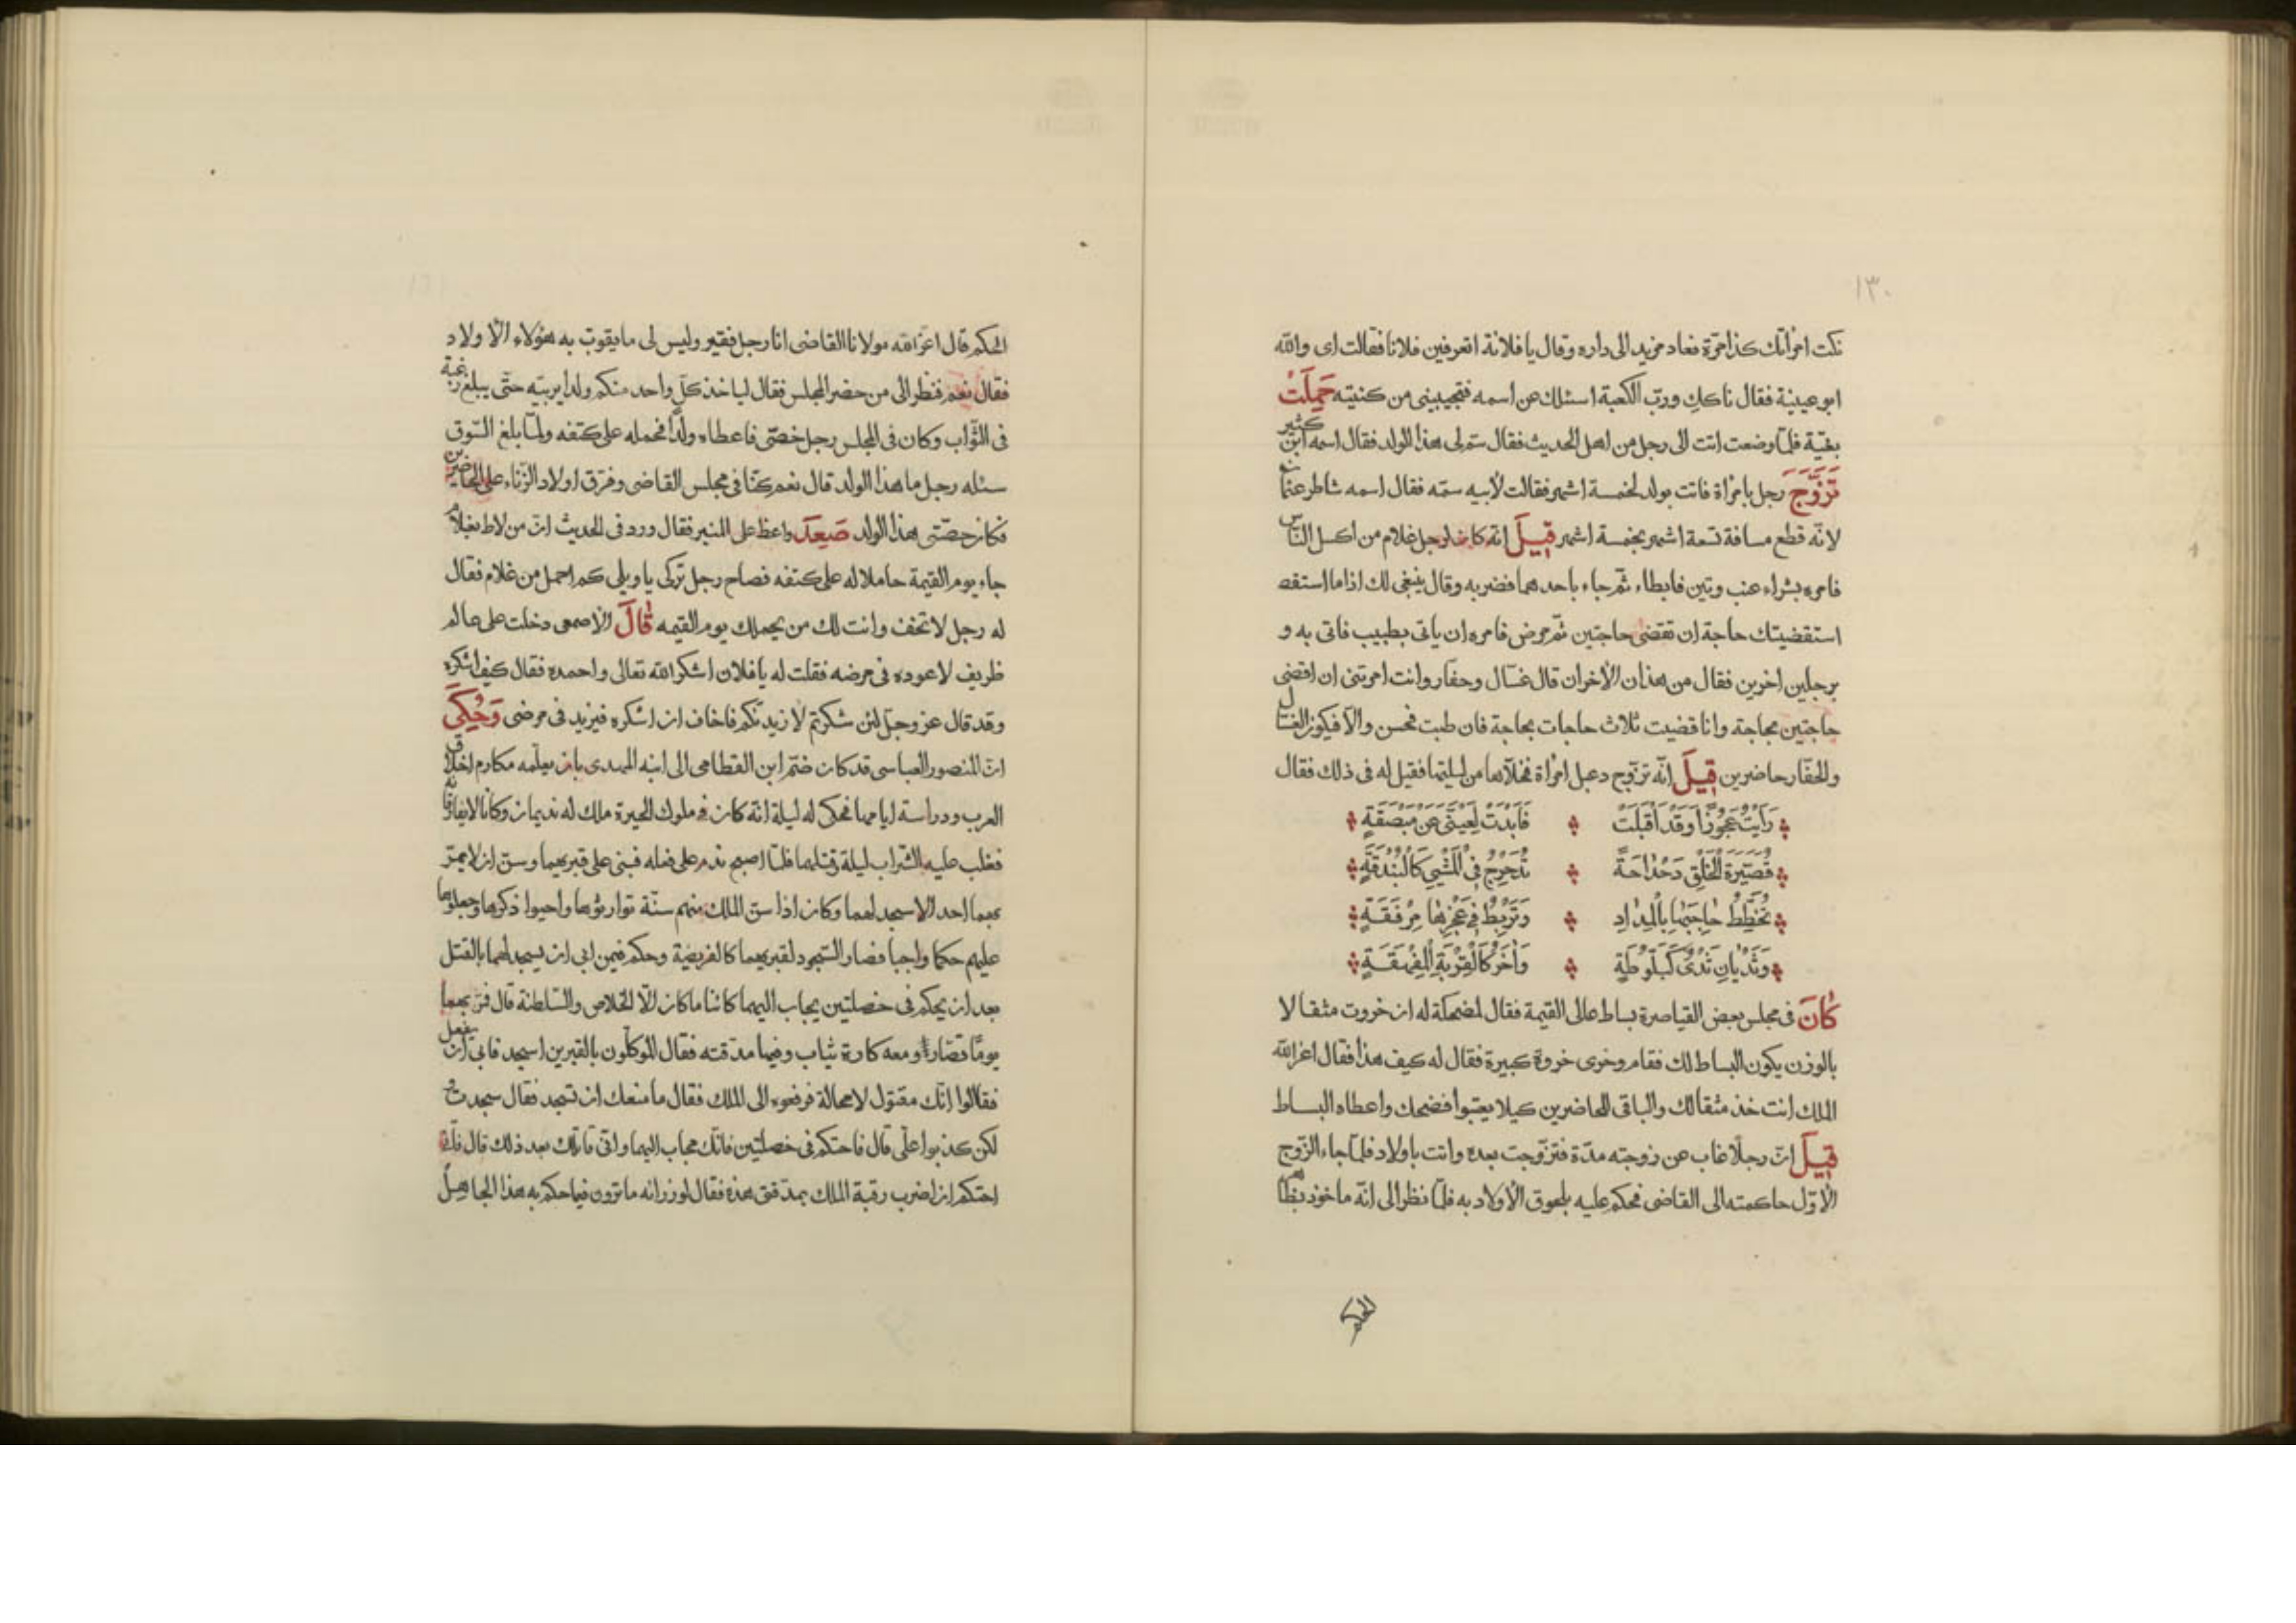 ١٣٠
نكت امراتك كذا مرّة فعاد مزيد الى داره وقال يا فلانة اتعرفين فلانا فقالت اى والله
ابو عيينة فقال ناكك وربّ الكعبة اسئلك عن اسمه فتجيبينى من كنيته حَمَلَتْ
بغيّة فلمّا وضعت اتت الى رجل من اهل الحديث فقال سمّ لى هذا الولد فقال اسمه ابن كثير
تَزَوَّجَ رجل بامراة فاتت بولد لخمسة اشهر فقالت لأبيه سمّه فقال اسمه شاطر
لانّه قطع مسافة تسعة اشهر بخمسة اشهر قيلَ انّه كان لرجل غلام من اكسل النّاس
فامره بشراء عنب وتين فابطاء ثمّ جاء باحدهما فضربه وقال ينبغى لك اذا ما استقض
استقضيتك حاجة ان تقضى حاجتين ثمّ مرض فامره ان ياتى بطبيب فاتى به و
برجلين اخرين فقال من هذان الأخران قال غسّال وحفّار وانت امرتنى ان اقضى
حاجتين بحاجة وانا قضيت ثلاث حاجات بحاجة فان طبت فحسن والّا فيكون الغسّال
والحفّار حاضرين قيلَ انّه تزوّج دعبل امراة فخلّاها من ليلتها فقيل له فى ذلك فقال
رَاَيْتُ عَجُوزًا وَقَدْ اَقْبَلَتْ فَاَبْدَتْ لِعَيْنَىَّ عَنْ مَبْصَقَةٍ
قُصَيِّرَةَ الْخَلْقِ دَحْدَاحَةً تُدَحْرِجُ فِى الْمَشْىِ كَالْبُنْدُقَةِ
تُخَطِّطُ حَاجِبَهَا بِالْمِدَادِ وَتَرْبِطُ فِى عَجْزِهَا مِرْفَقَةٍ
وَثَدْيَانِ ثَدْىٌ كَبَلُّوطَةٍ وَاٰخَرُ كَالْقِرْبَةِ الْمُفْهَقَةِ
كَانَ فى مجلس بعض القياصرة بساط عالى القيمة فقال لمضحكة له ان خروت مثقالا
بالوزن يكون البساط لك فقام وخرى خروة كبيرة فقال له كيف هذا فقال اعزّ الله
الملك انت خذ مثقالك والباقى للحاضرين كيلا يعتبوا فضحك واعطاه البساط
قيلَ انّ رجلًا غاب عن زوجته مدّة فتزوّجت بعده واتت باولاد فلمّا جاء الزّوج
الأوّل حاكمته الى القاضى فحكم عليه بلحوق الأولاد به فلمّا نظر الى انّه ماخوذ بظاهر
الحكم قال اعزّ الله مولانا القاضى انا رجل فقير وليس لى ما يقوت به هؤلاء الأولاد
فقال نعم فنظر الى من حضر المجلس فقال لياخذ كلّ واحد منكم ولدا يربّيه حتّى يبلغ رغبة
فى الثّواب وكان فى المجلس رجل خصّى فاعطاه ولدًا فحمله على كتفه ولمّا بلغ السّوق
سئله رجل ما هذا الولد قال نعم كنّا فى مجلس القاضى وفرّق اولاد الزّناء على الحاضرين
فكان حصّتى هذا الولد صَعِدَ واعظ على المنبر فقال ورد فى الحديث انّ من لاط بغلام
جاء يوم القيمة حاملا له على كتفه فصاح رجل تركى يا ويلى كم احمل من غلام فقال
له رجل لا تخف وانت لك من يحملك يوم القيمه قَالَ الأصمعى دخلت على عالم
ظريف لاعوده فى مرضه فقلت له يا فلان اشكر الله تعالى واحمده فقال كيف اشكره
وقد قال عز وجلّ لئن شكرتم لأزيدنّكم فاخاف ان اشكره فيزيد فى مرضى وَحُكِىَ
انّ المنصور العباسى قد كان ضمّ ابن القطامى الى ابنه المهدى بان يعلّمه مكارم اخلاق
العرب ودراسة ايامها فحكى له ليلة انّه كان فى ملوك الحيرة ملك له نديمان وكانا لا يفارقانه
فغلب عليه الشّراب ليلة فقتلهما فلمّا اصبح ندم على فعله فبنى على قبريهما وسنّ ان لا يمرّ
بهما احد الا سجد لهما وكان اذا سنّ الملك منهم سنّة توارثوها واحيوا ذكرها وجعلوها
عليهم حكما واجبا فصار السّجود لقبريهما كالفريضة وحكم فيمن ابى ان يسجد لهما بالقتل
بعد ان يحكم فى خصلتين يجاب اليهما كائنا ما كان الّا الخلاص والسّلطنة قال فمرّ بهما
يومًا قصّار ومعه كارة ثياب وفيها مدقته فقال الموكّلون بالقبرين اسجد فابى ان يفعل
فقالوا انّك مقتول لا محالة فرفعوه الى الملك فقال ما منعك ان تسجد فقال سجدت و
لكن كذبوا علىّ قال فاحتكم فى خصلتين فانّك مجاب اليهما وانّى قاتلك بعد ذلك قال فانّى
احتكم ان اضرب رقبة الملك بمدقتى هذه فقال لوزرائه ما ترون فيما حكم به هذا الجاهل
الحكم